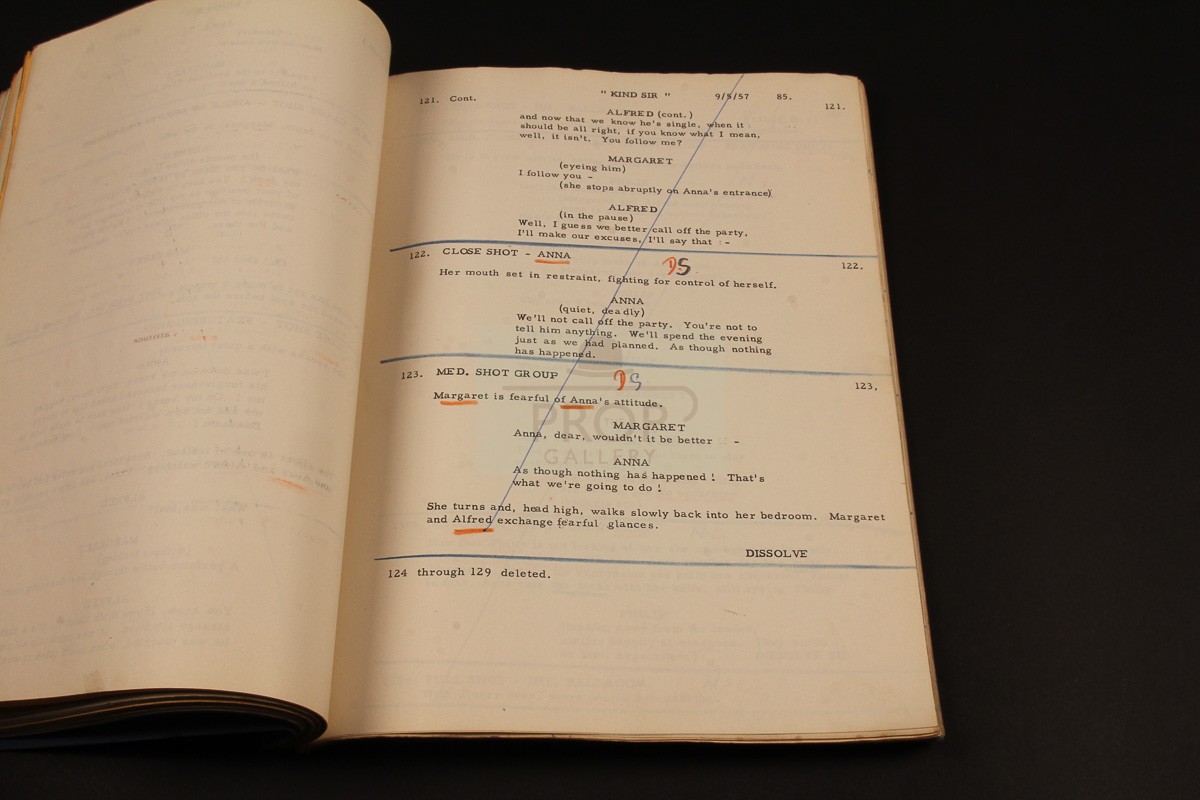 121. Cont. " KIND SIR " 9/5/57 85.
121.
ALFRED (cont.)
and now that we know he's single, when it
should be all right, if you know what I mean,
well, it isn't. You follow me?
MARGARET
(eyeing him)
I follow you -
(she stops abruptly on Anna's entrance)
ALFRED
(in the pause)
Well, I guess we better call off the party.
I'll make our excuses, I'll say that : -
122. CLOSE SHOT - ANNA DS 122.
Her mouth set in restraint, fighting for control of herself.
ANNA
(quiet, deadly)
We'll not call off the party. You're not to
tell him anything. We'll spend the evening
just as we had planned. As though nothing
has happened.
123. MED. SHOT GROUP DS 123.
Margaret is fearful of Anna's attitude.
MARGARET
Anna, dear, wouldn't it be better : -
ANNA
As though nothing has happened ! That's
what we're going to do !
She turns and, head high, walks slowly back into her bedroom. Margaret
and Alfred exchange fearful glances.
DISSOLVE
124 through 129 deleted.
PROP
GALLERY